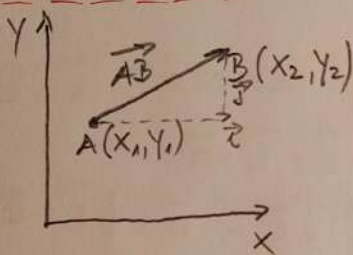 Y
AB
B (X2,Y2)
J
A(X1,Y1)
i
X